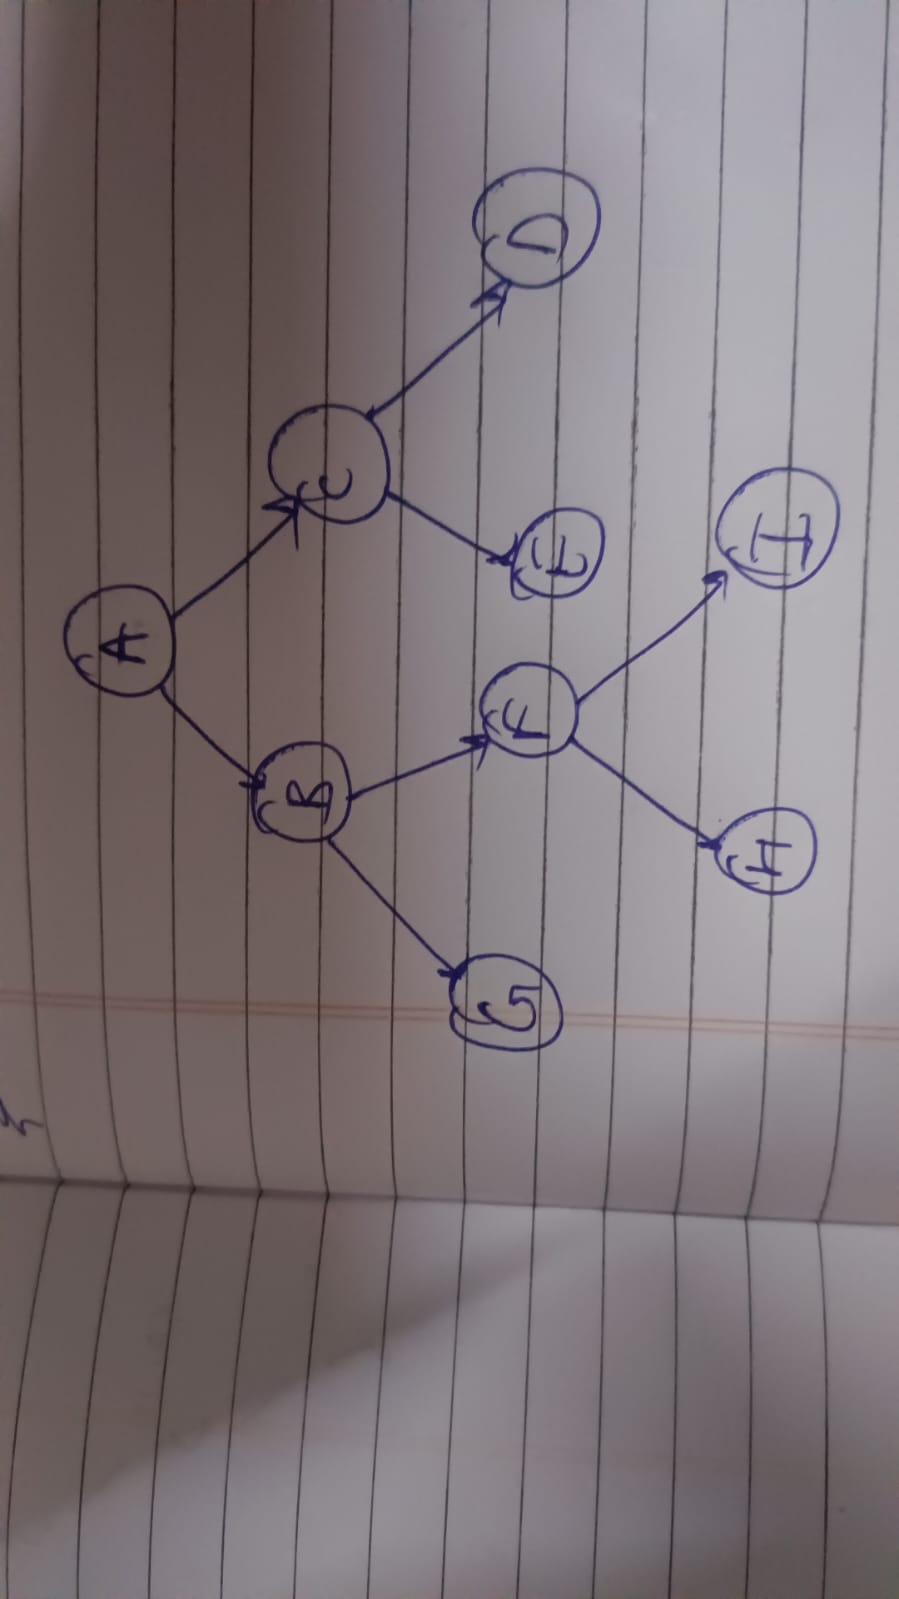 A
B
C
G
F
E
D
H
I